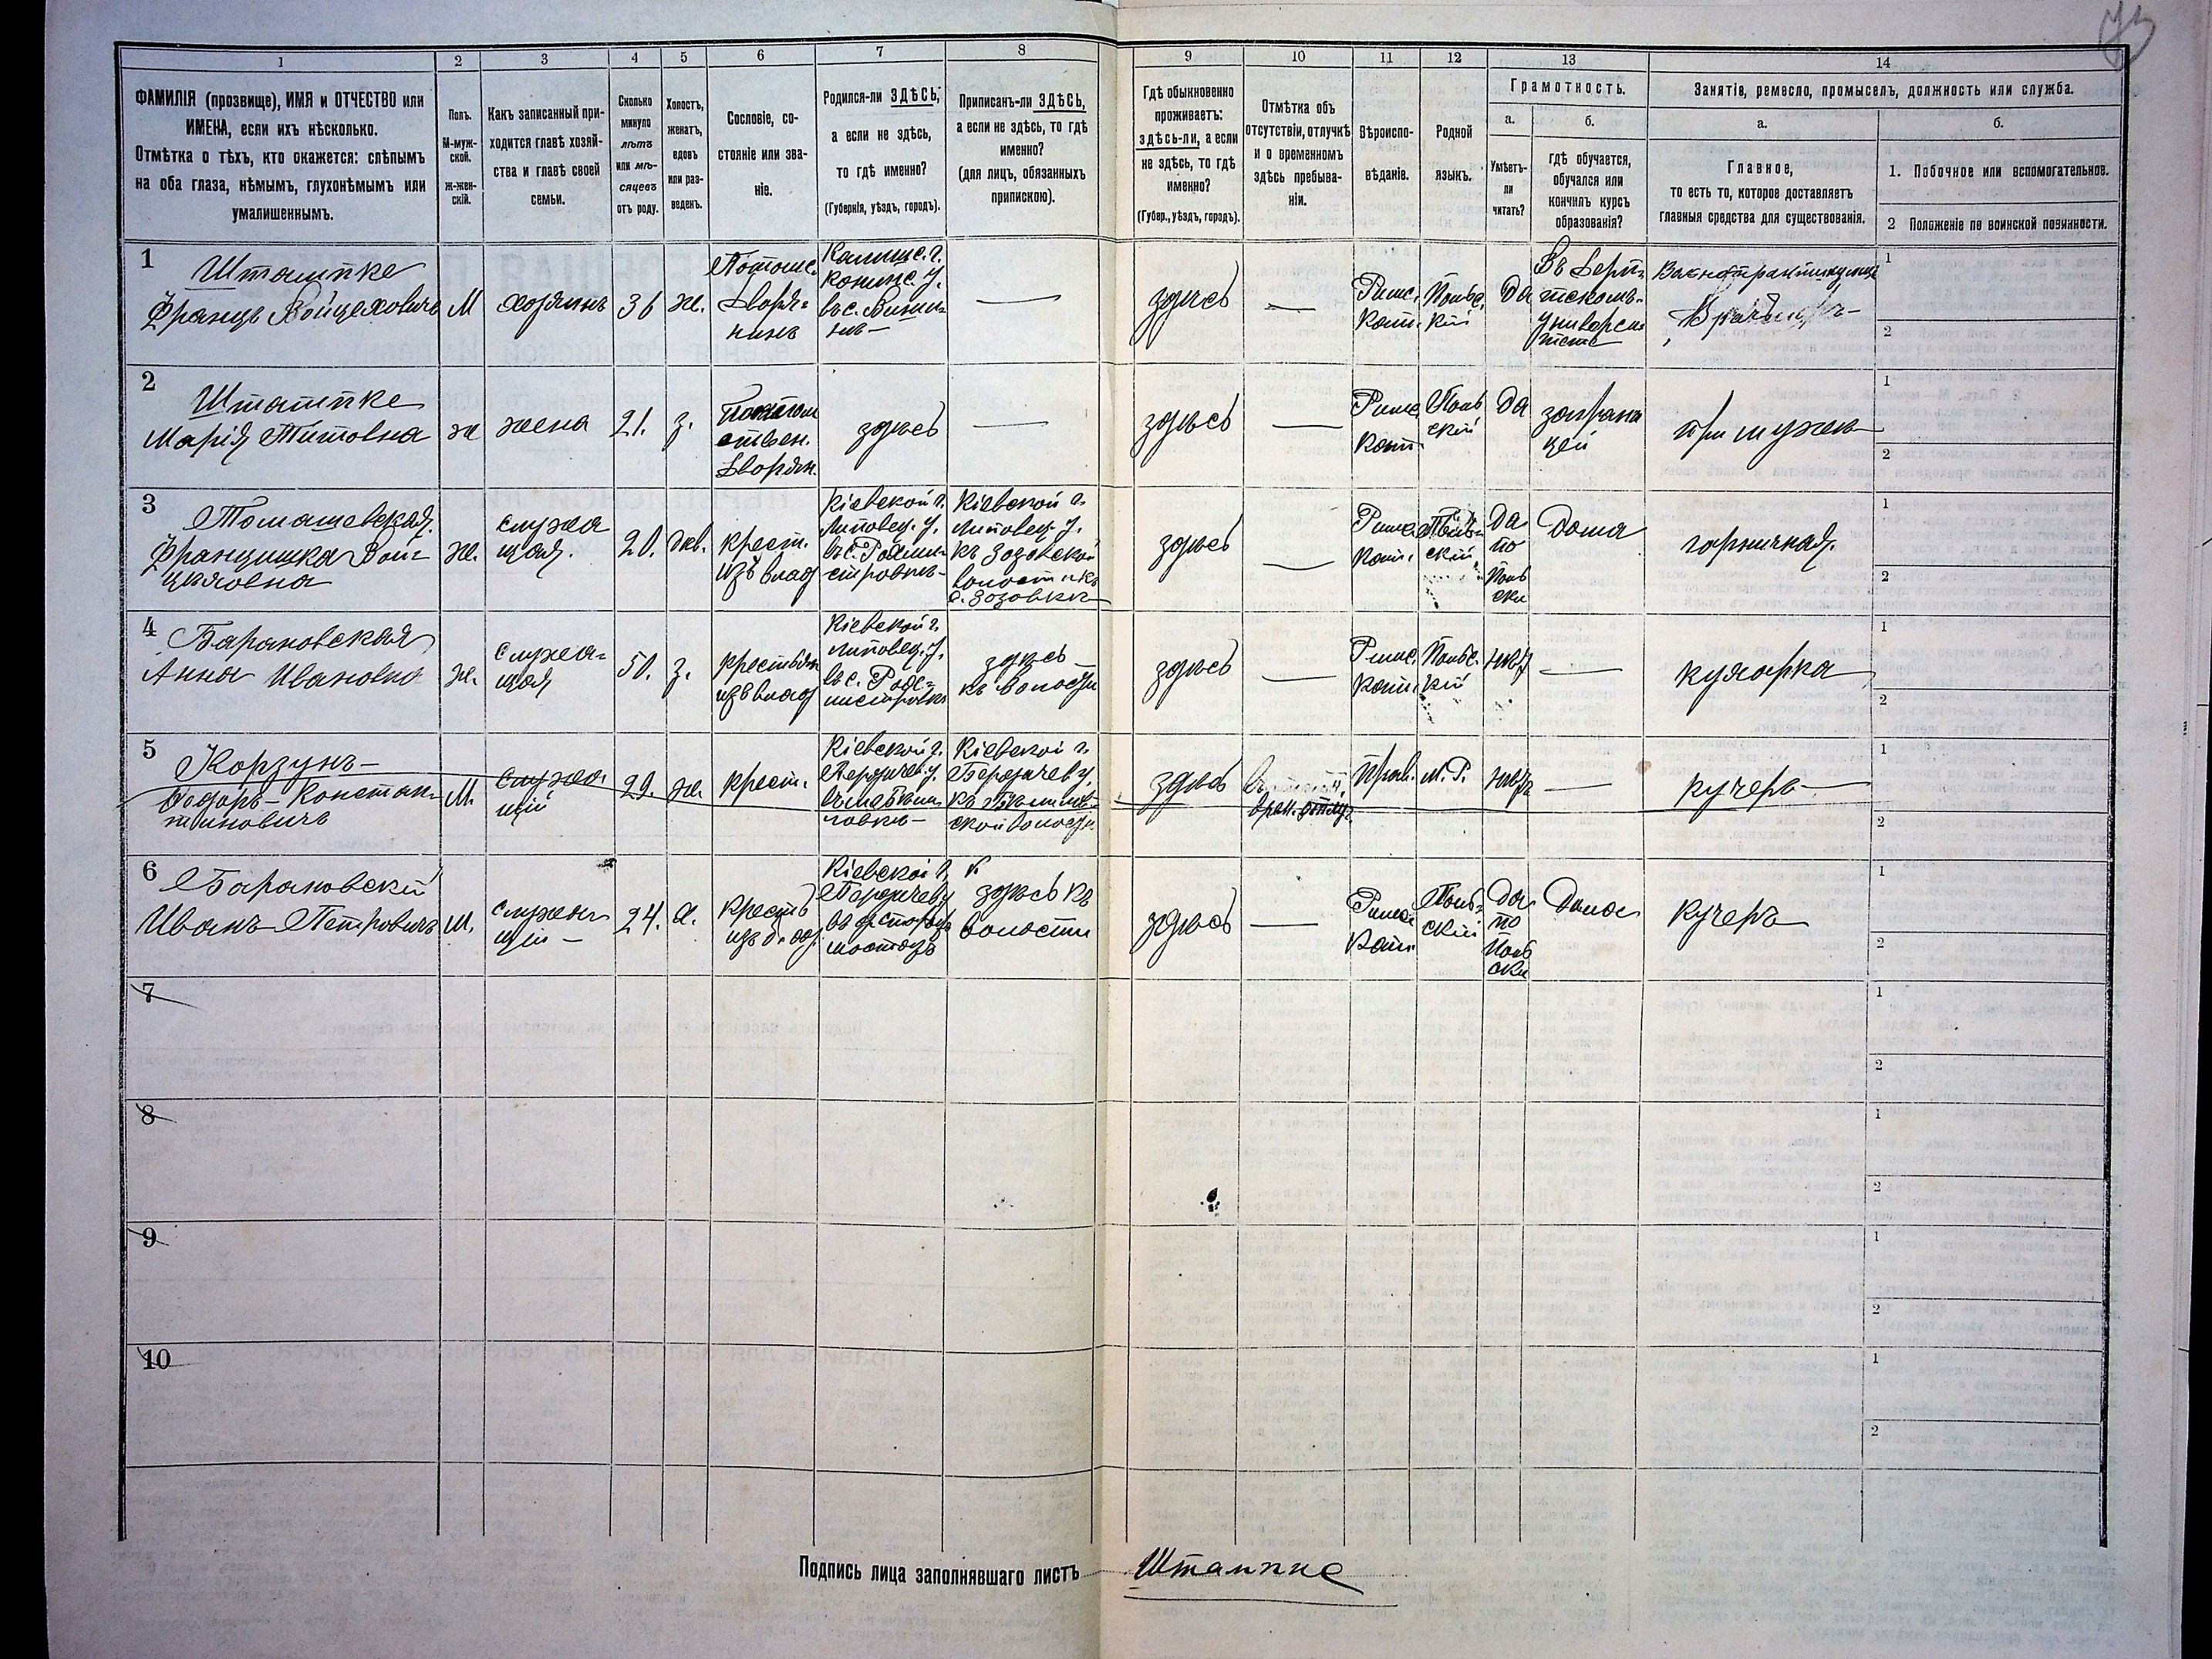 73
1
2
3
4
5
6
7
8
9
10
11
12
13
14
ФАМИЛІЯ (прозвище), ИМЯ и ОТЧЕСТВО или
ИМЕНА, если ихъ нѣсколько.
Отмѣтка о тѣхъ, кто окажется: слѣпымъ
на оба глаза, нѣмымъ, глухонѣмымъ или
умалишеннымъ.
Полъ.
М-муж-
ской.
Ж-жен-
скій.
Какъ записанный при-
ходится главѣ хозяй-
ства и главѣ своей
семьи.
Сколько
минуло
лѣтъ
или мѣ-
сяцевъ
отъ роду.
Холостъ,
женатъ,
вдовъ
или раз-
веденъ.
Сословіе, со-
стояніе или зва-
ніе.
Родился-ли ЗДѢСЬ,
а если не здѣсь,
то гдѣ именно?
(Губернія, уѣздъ, городъ).
Приписанъ-ли ЗДѢСЬ,
а если не здѣсь, то гдѣ
именно?
(для лицъ, обязанныхъ
припискою).
Гдѣ обыкновенно
проживаетъ:
здѣсь-ли, а если
не здѣсь, то гдѣ
именно?
(Губер., уѣздъ, городъ).
Отмѣтка объ
отсутствіи, отлучкѣ
и о временномъ
здѣсь пребыва-
ніи.
Вѣроиспо-
вѣданіе.
Родной
языкъ.
Грамотность.
а.
Умѣетъ-
ли
читать?
б.
гдѣ обучается,
обучался или
кончилъ курсъ
образованія?
Занятіе, ремесло, промыселъ, должность или служба.
а.
Главное,
то есть то, которое доставляетъ
главныя средства для существованія.
б.
1. Побочное или вспомогательное.
2 Положеніе по воинской повинности.
1
Штампке
Францъ Войцеховичъ
М
хозяинъ
36
ж.
Потомс.
Дворя-
нинъ
Калишс. г.
Конинс. у.
въ с.
—
здѣсь
—
Римс.
Кат.
Польс.
кій
Да
Въ Дерп-
тскомъ
Универси-
тетѣ
1
2
2
Штампке
Марія Титовна
ж
жена
21.
з.
Потом
ствен.
Дворян.
здѣсь
—
здѣсь
—
Римс.
Кат.
Поль
скій
Да
заграни
цей
при мужѣ
1
2
3
Томашевская
Францишка Вой-
цѣховна
ж.
служа
щая.
20.
дѣв.
крест.
изъ влад
Кіевской г.
Липовец. у.
въ с.
Кіевской г.
Липовец. у.
къ Зозовской
волости къ
с. Зозовкѣ
здѣсь
—
Римс.
Кат.
Поль
скій
Да
по
Поль
ски
Дома
горничная.
1
2
4
Барановская
Анна Ивановна
ж.
служа-
щая
50.
з.
крестьян
изъ влад
Кіевской г.
Липовец. у.
въ с.
здѣсь
къ волости
здѣсь
—
Римс.
Кат.
Польс.
кій
нѣт
—
кухарка
1
2
5
Корзунъ
Федоръ Констан-
тиновичъ
М.
служа
щій
29.
ж.
крест.
Кіевской г.
Бердичев. у.
Кіевской г.
Бердичев. у.
ской волости
здѣсь
врем. отлуч
Прав.
М. Р.
нѣт
—
кучеръ
1
2
6
Барановскій
Иванъ Петровичъ
М.
служа
щій
24.
х.
крест.
Кіевской г.
Бердичев. у.
здѣсь къ
волости
здѣсь
—
Римс.
Кат.
Поль
скій
Да
по
Поль
ски
Дома
кучеръ
1
2
7
1
2
8
1
2
9
1
2
10
1
2
Подпись лица заполнявшаго листъ
Штампке